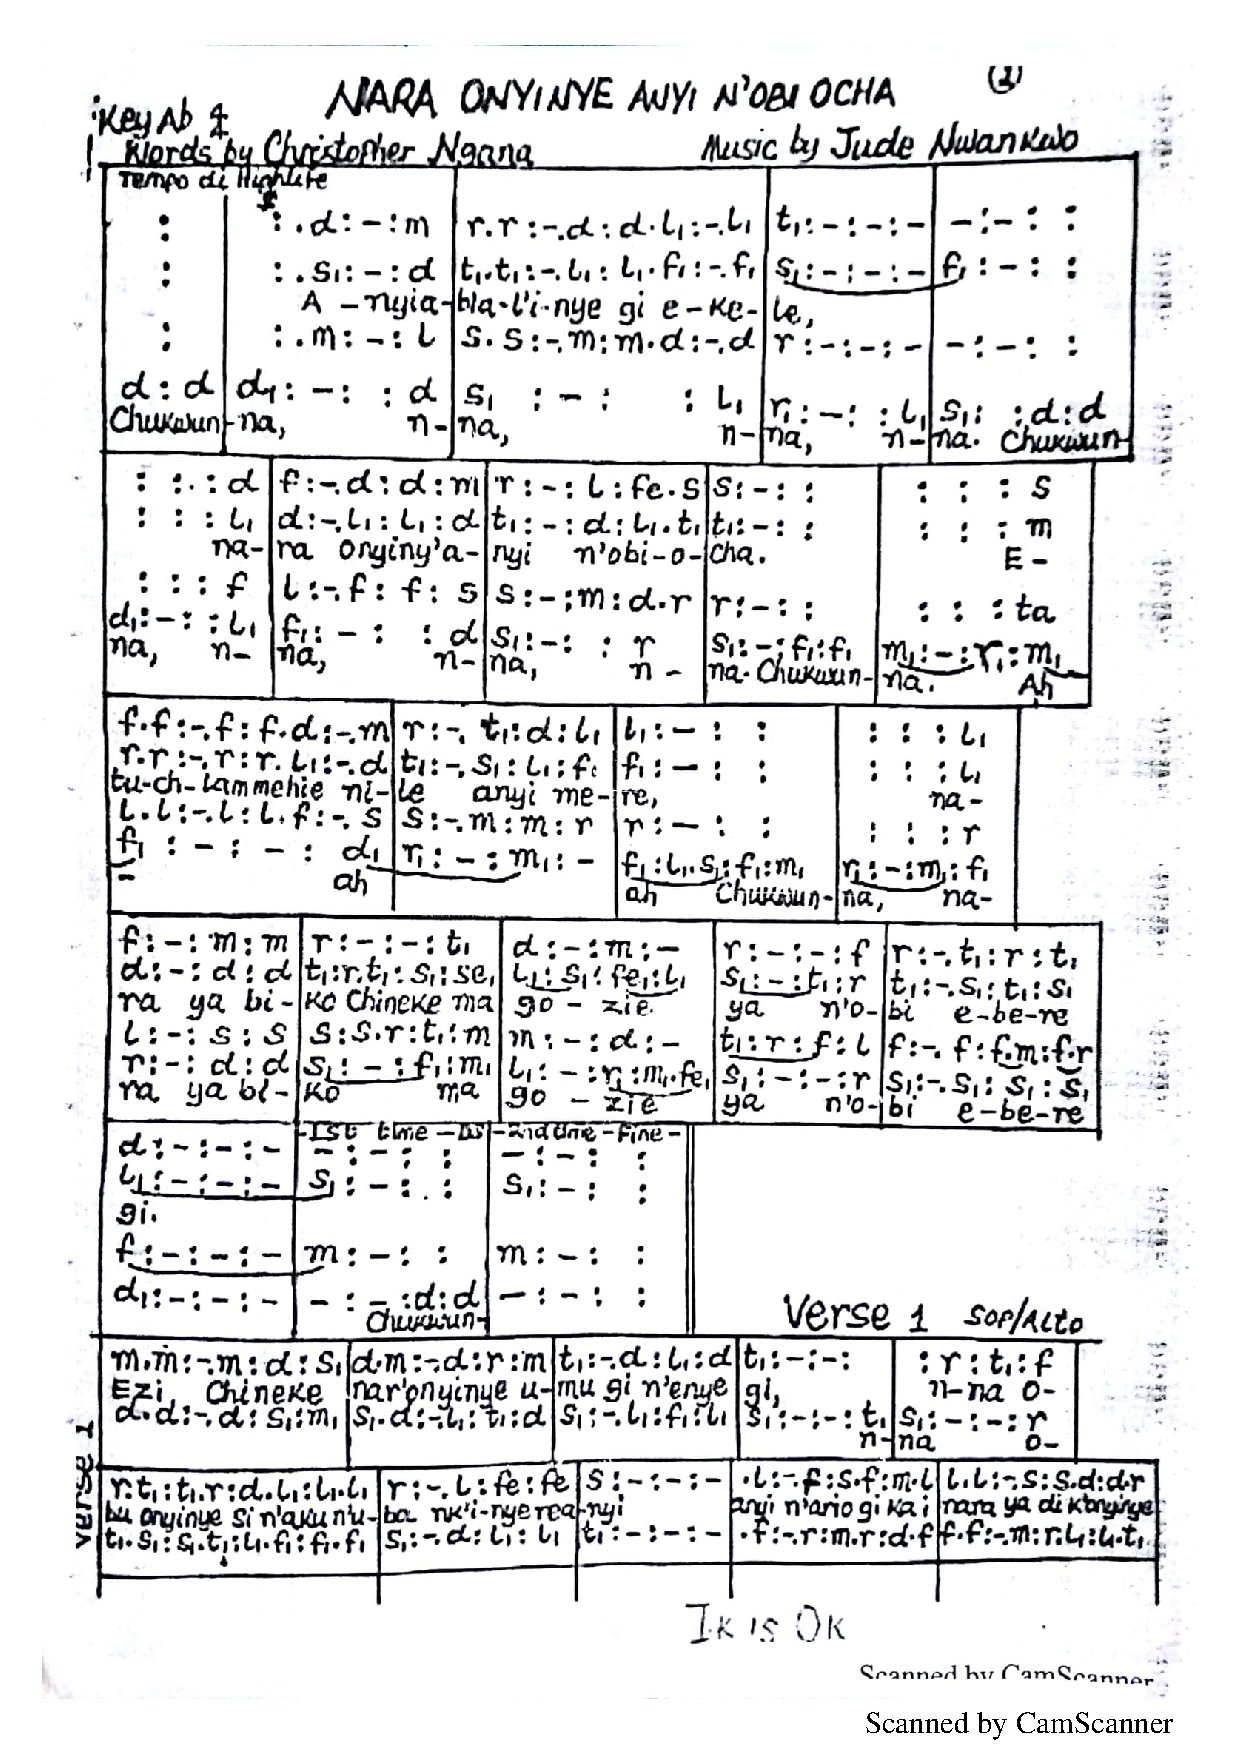 (1)
NARA ONYINYE ANYI N'OBI OCHA
Key Ab
Words by Christopher Nganna Music by Jude Nwankwo
Tempo di Highlife
: : . d : - : m r.r : -.d : d.l₁ : -.l₁ t₁ : - : - : - - : - : :
: : . s₁ : - : d t₁.t₁ : -.l₁ : l₁.f₁ : -.f₁ s₁ : - : - : - f₁ : - : :
A - nyia- bla-l'i-nye gi e-ke- le,
: : . m : - : l s.s : -.m : m.d : -.d r : - : - : - - : - : :
d : d d₁ : - : : d s₁ : - : : l₁ r₁ : - : : l₁ s₁ : : d : d
Chukwun- na, n- na, n- na, n- na. Chukwun-
: : . : d f : -.d : d : m r : - : l : fe.s s : - : : : : : s
: : : l₁ d : -.l₁ : l₁ : d t₁ : - : d : l₁.t₁ t₁ : - : : : : : m
na- ra onyiny'a- nyi n'obi-o- cha. E-
: : : f l : -.f : f : s s : - : m : d.r r : - : : : : : ta
d₁ : - : : l₁ f₁ : - : : d s₁ : - : : r s₁ : - : f₁ : f₁ m₁ : - : r₁ : m₁
na, n- na, n- na, n- na. Chukwun- na. Ah
f.f : -.f : f.d : -.m r : -.t₁ : d : l₁ l₁ : - : : : : : l₁
r.r : -.r : r.l₁ : -.d t₁ : -.s₁ : l₁ : f₁ f₁ : - : : : : : l₁
tu-ch-lammehie ni- le anyi me- re, na-
l.l : -.l : l.f : -.s s : -.m : m : r r : - : : : : : r
f₁ : - : - : d₁ r₁ : - : m₁ : - f₁ : l₁.s₁ : f₁ : m₁ r₁ : - : m₁ : f₁
- ah ah Chukwun- na, na-
f : - : m : m r : - : - : t₁ d : - : m : - r : - : - : f r : -.t₁ : r : t₁
d : - : d : d t₁ : r.t₁ : s₁ : se₁ l₁ : s₁ : fe₁ : l₁ s₁ : - : t₁ : r t₁ : -.s₁ : t₁ : s₁
ra ya bi- ko Chineke ma go - zie ya n'o- bi e-be-re
l : - : s : s s : s.r : t₁ : m m : - : d : - t₁ : r : f : l f : -.f : f.m : f.r
r : - : d : d s₁ : - : f₁ : m₁ l₁ : - : r₁ : m₁.fe₁ s₁ : - : - : r s₁ : -.s₁ : s₁ : s₁
ra ya bi- ko ma go - zie ya n'o- bi e-be-re
-1st time - DS -2nd time - Fine -
d : - : - : - - : - : : - : - : :
l₁ : - : - : - s₁ : - : . : s₁ : - : :
gi.
f : - : - : - m : - : : m : - : :
d₁ : - : - : - - : - : d : d - : - : :
Chukwun-
Verse 1 SOP/ALTO
m.m : -.m : d : s₁ d.m : -.d : r : m t₁ : -.d : l₁ : d t₁ : - : - : : r : t₁ : f
Ezi Chineke nar'onyinye u- mu gi n'enye gi, n-na o-
d.d : -.d : s₁ : m₁ s₁.d : -.l₁ : t₁ : d s₁ : -.l₁ : f₁ : l₁ s₁ : - : - : t₁ s₁ : - : - : r
n- na o-
Verse 1
r.t₁ : t₁.r : d.l₁ : l₁.l₁ r : -.l : fe : fe s : - : - : - .l : -.f : s.f : m.l l.l : -.s : s.d : d.r
bu onyinye si n'aku n'u- ba nk'i-nyerea-nyi anyi n'ario gi ka i nara ya di k'onyinye
t₁.s₁ : s₁.t₁ : l₁.f₁ : f₁.f₁ s₁ : -.d : l₁ : l₁ t₁ : - : - : - .f : -.r : m.r : d.f f.f : -.m : r.l₁ : l₁.t₁
Ik is Ok
Scanned by CamScanner
Scanned by CamScanner